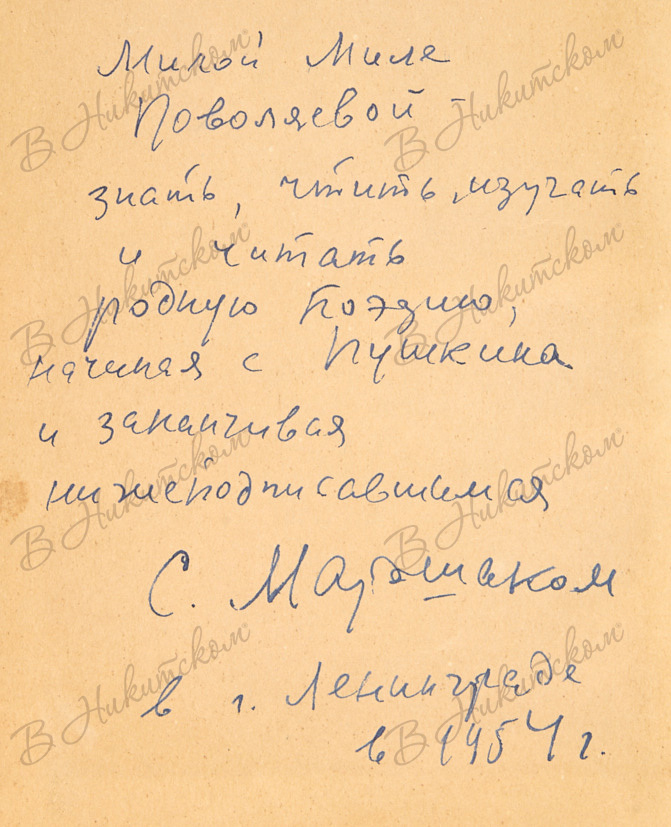 Милой Миле
Поволяевой –
знать, чтить, изучать
и читать
родную поэзию,
начиная с Пушкина
и заканчивая
нижеподписавшимся
С. Маршаком
в г. Ленинграде
в 1954 г.
В Никитском
В Никитском
В Никитском
В Никитском
В Никитском
В Никитском
В Никитском
В Никитском